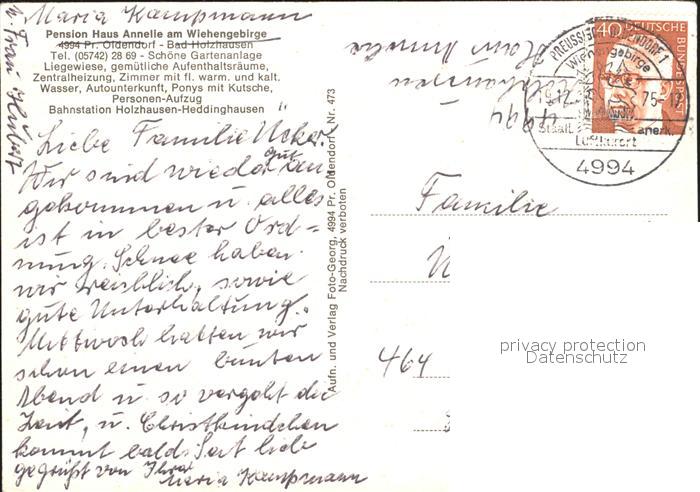 Maria Kampmann
u. Frau Hubert
Pension Haus Annelle am Wiehengebirge
4994 Pr. Oldendorf - Bad Holzhausen
Tel. (05742) 28 69 - Schöne Gartenanlage
Liegewiese, gemütliche Aufenthaltsräume,
Zentralheizung, Zimmer mit fl. warm. und kalt.
Wasser, Autounterkunft, Ponys mit Kutsche,
Personen-Aufzug
Bahnstation Holzhausen-Heddinghausen
Liebe Familie
Wir sind wieder gut an
gekommen u. alles
ist in bester Ord=
nung. Schnee haben
wir reichlich, sowie
gute Unterhaltung.
Mittwoch hatten wir
schon einen bunten
Abend u. so vergeht die
Zeit, u. Christkindchen
kommt bald. Seid lieb
gegrüßt von Ihrer
Maria Kampmann
Aufn. und Verlag Foto-Georg, 4994 Pr. Oldendorf Nr. 473
Nachdruck verboten
Haus Annelle
Holzhausen
4994
40
DEUTSCHE BUNDESPOST
PREUSSISCH OLDENDORF 1
Wiehengebirge
19.12. 75-17
Staatl. anerk.
Luftkurort
4994
Familie
464
privacy protection
Datenschutz